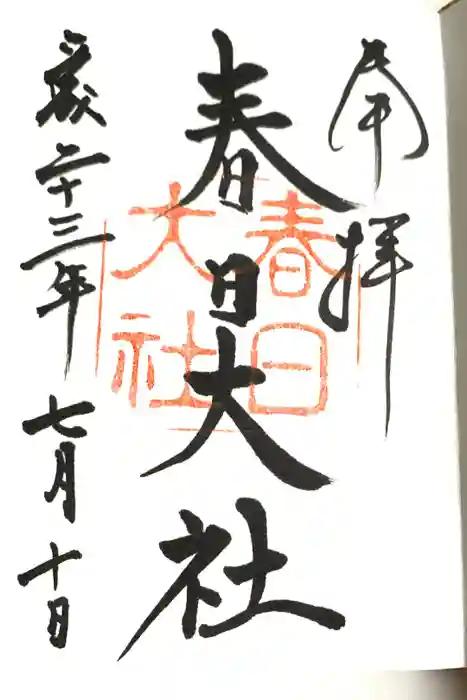 奉拝
春日大社
春日
大社
平成二十三年七月十日